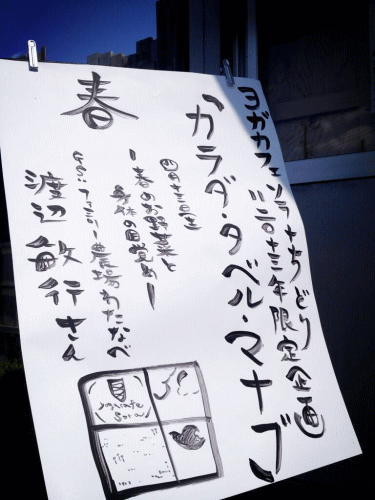 ヨガカフェソラ+ちどり
二〇十三年限定企画
「カラダ・タベル・マナブ」
春
四月十三日(土)
ー春のお野菜と
身体の目覚めー
ファミリー農場わたなべ
渡辺敏行さん
yogacafe
Sora